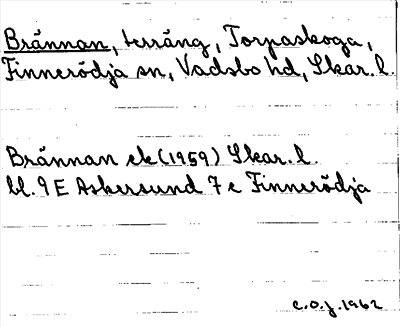 Brännan, terräng, Torpaskoga,
Finnerödja sn, Vadsbo hd, Skar. l.
Brännan ek (1959) Skar. l.
bl. 9 E Askersund 7 e Finnerödja
C.O.J. 1962